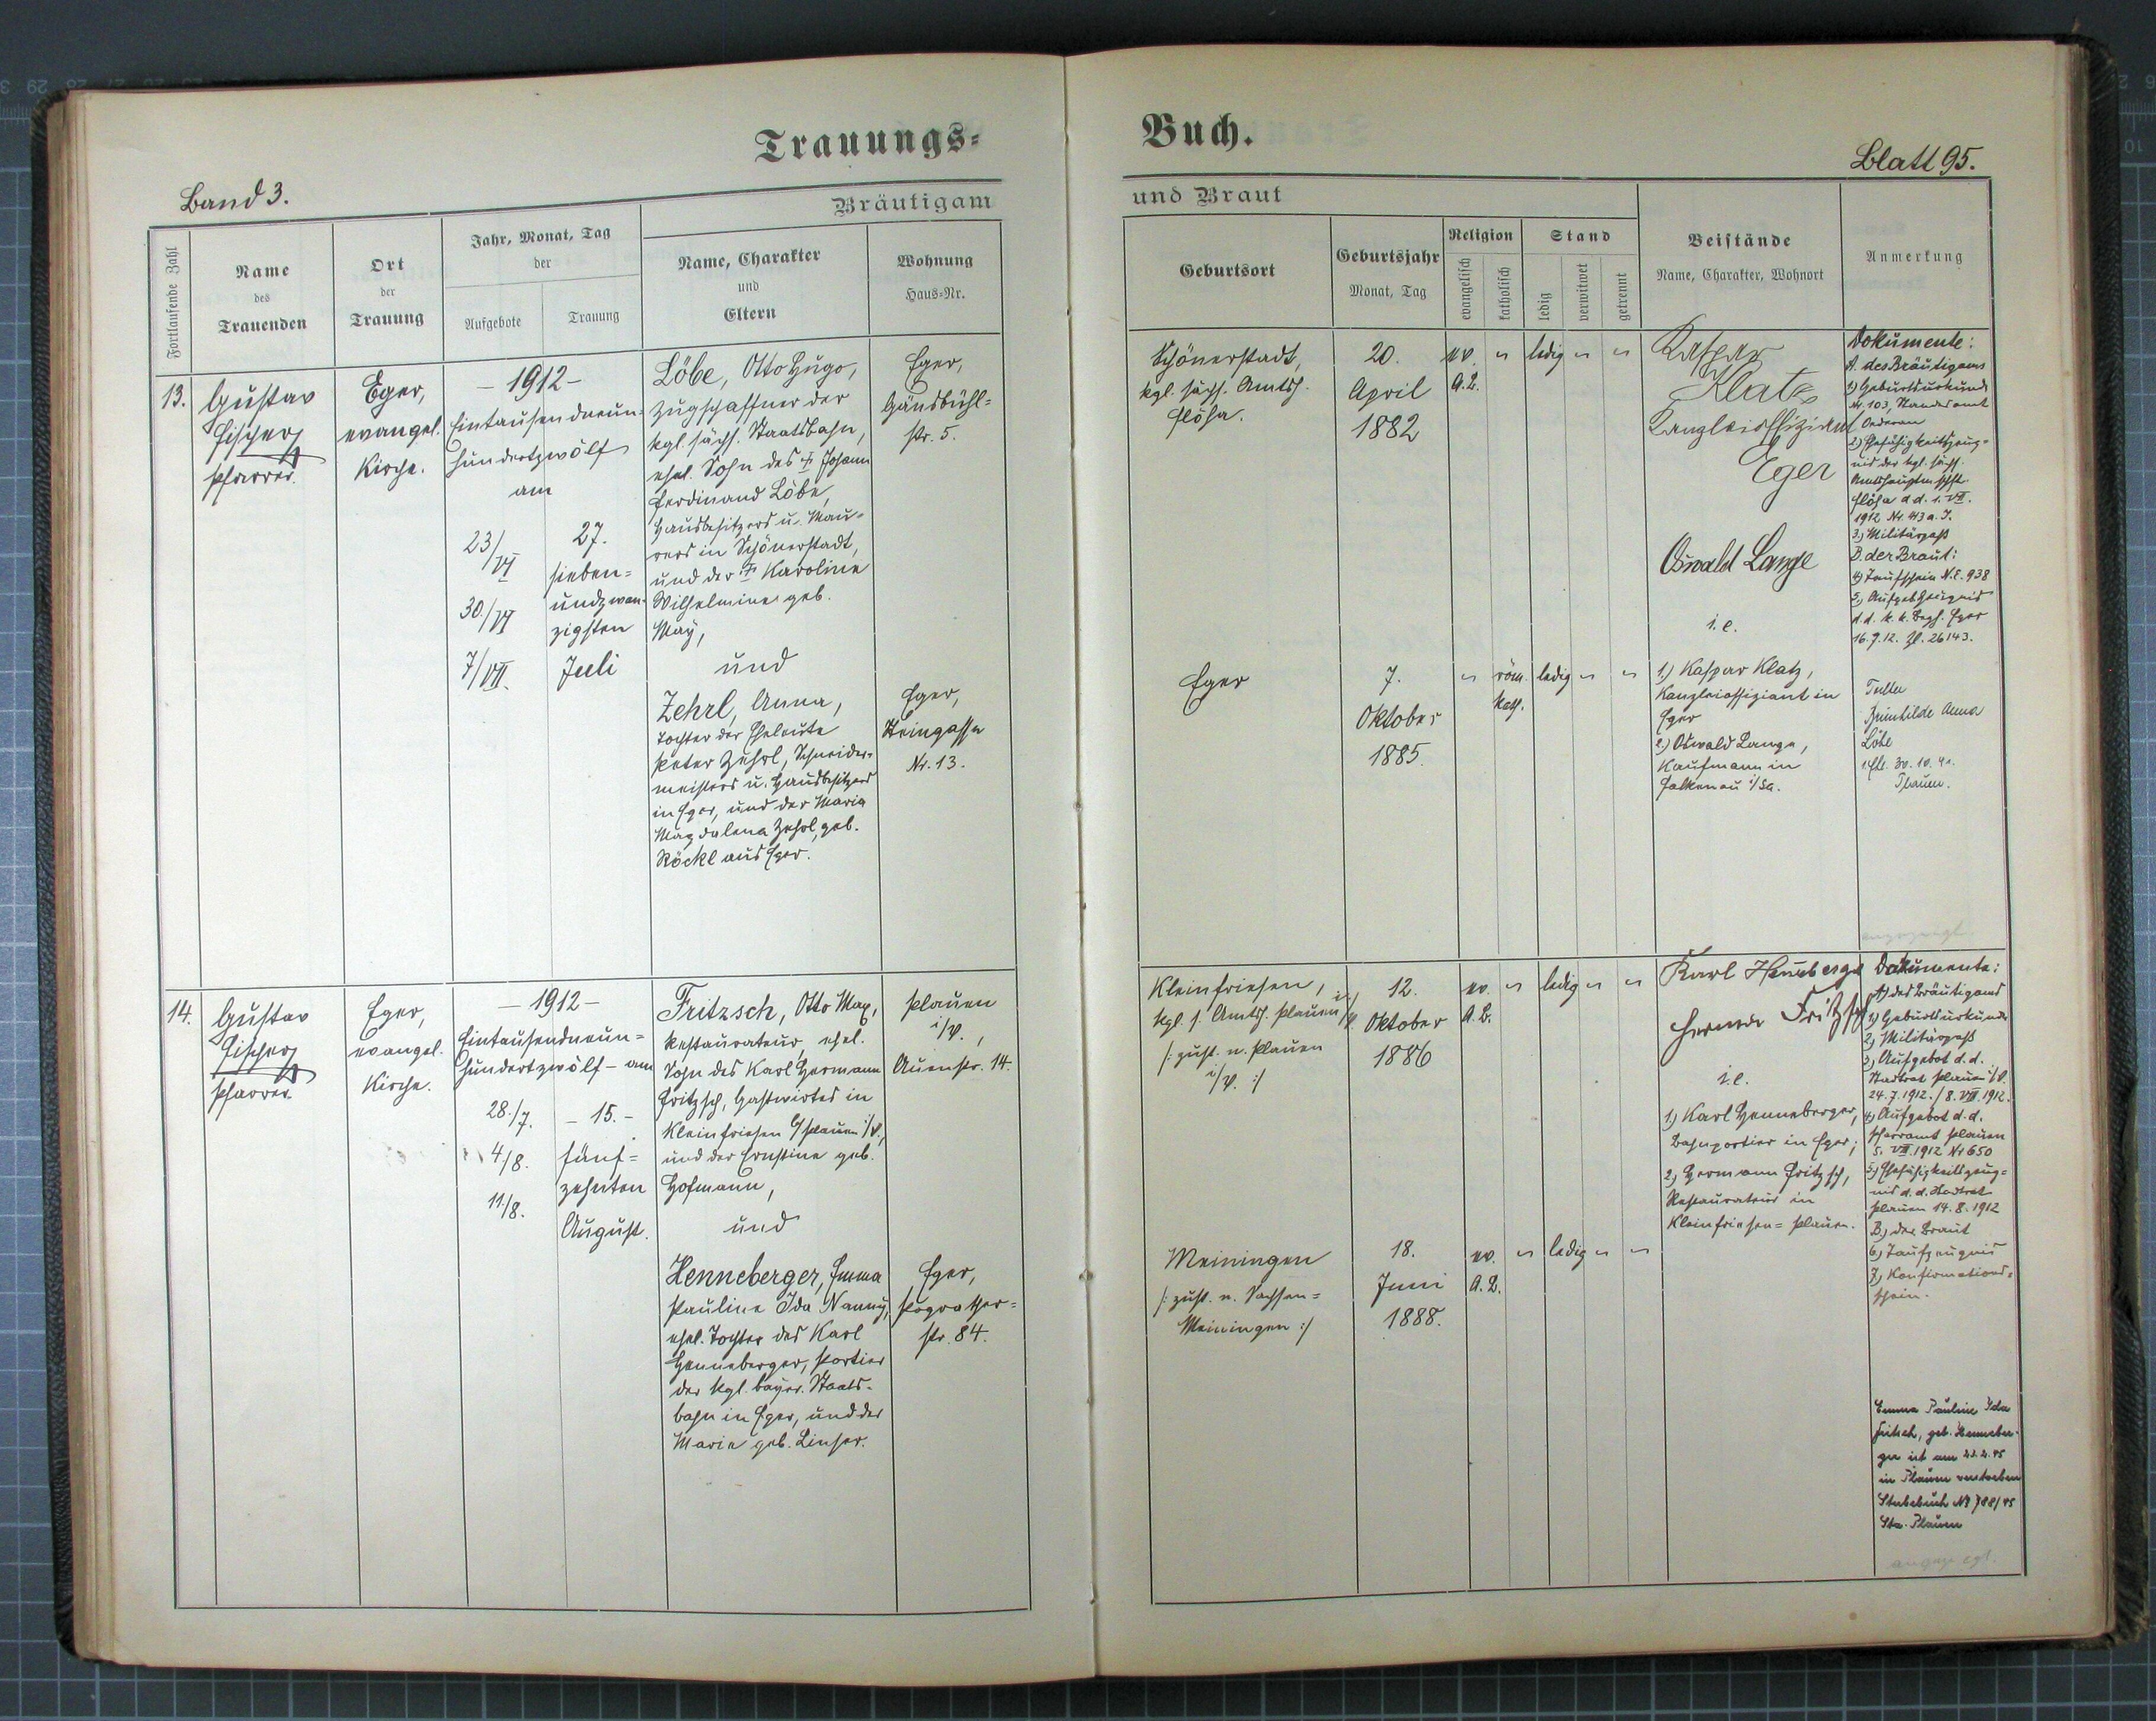 Trauungs-
Band 3.
Bräutigam
Fortlaufende Zahl
Name
des
Trauenden
Ort
der
Trauung
Jahr, Monat, Tag
der
Aufgebote
Trauung
Name, Charakter
und
Eltern
Wohnung
Haus-Nr.
13.
Gustav
Fischer
Pfarrer.
Eger,
evangel.
Kirche.
- 1912 -
Eintausendneun-
hundertzwölf
am
23/VI
30./VI
7/VII.
27.
sieben=
undzwan-
zigsten
Juli
Löbe, Otto Hugo,
Zugschaffner der
kgl. sächs. Staatsbahn,
ehel. Sohn des † Johann
Ferdinand Löbe,
Hausbesitzers u. Mau-
rers in Schönerstadt,
und der † Karoline
Wilhelmine geb.
May,
und
Zehrl, Anna,
Tochter der Eheleute
Peter Zehrl, Schneider-
meisters u. Hausbesitzers
in Eger, und der Maria
Magdalena Zehrl, geb.
Röckl aus Eger.
Eger,
Gänsbühl=
str. 5.
Eger,
Steingasse
Nr. 13.
14.
Gustav
Fischer
Pfarrer.
Eger,
evangel.
Kirche.
- 1912 -
Eintausendneun=
hundertzwölf - am
28./7.
4/8.
11/8.
- 15. -
fünf=
zehnten
August.
Fritzsch, Otto Max,
Restaurateur, ehel.
Sohn des Karl Hermann
Fritzsch, Gastwirtes in
Kleinfriesen b/Plauen i/V.,
und der Ernstine geb.
Hofmann,
und
Henneberger, Emma
Pauline Ida Nanny,
ehel. Tochter des Karl
Henneberger, Portier
der kgl. bayer. Staats-
bahn in Eger, und der
Marie geb. Linser.
Plauen
i/V.,
Auenstr. 14.
Eger,
Pograther=
str. 84.
Buch.
Blatt 95.
und Braut
Geburtsort
Geburtsjahr
Monat, Tag
Religion
evangelisch
katholisch
Stand
ledig
verwitwet
getrennt
Beistände
Name, Charakter, Wohnort
Anmerkung
Schönerstadt,
kgl. sächs. Amtsh.
Flöha.
20.
April
1882
ev. " ledig " "
A.B.
Kaspar
Klatz
Kanzleioffiziant
Eger
Oswald Lange
i.e.
1.) Kaspar Klatz,
Kanzleioffiziant in
Eger
2.) Oswald Lange,
Kaufmann in
Falkenau i/Sa.
Dokumente:
A. des Bräutigams
1) Geburtsurkunde
Nr. 103, Standesamt
Oederan
2) Ehefähigkeitszeug=
nis der kgl. sächs.
Amtshauptmschft.
Flöha d.d. 1. VII.
1912 Nr. 413 a. J.
3.) Militärpaß
B. der Braut:
4) Taufschein N.E. 938
5.) Aufgebzeugnis
d.d. k. k. Bezh. Eger
16.7.12. Zl. 26143.
Eger
7.
Oktober
1885.
" röm. ledig " "
kath.
Anna
Löbe
30. 10. 41.
Plauen.
Kleinfriesen,
kgl. s. Amtsh. Plauen i/V.
/: zust. n. Plauen
i/V. :/
12.
Oktober
1886
ev. " ledig " "
A.B.
Karl Henneberger
Herman Fritzsch
i.e.
1.) Karl Henneberger,
Bahnportier in Eger;
2.) Hermann Fritzsch,
Restaurateur in
Kleinfriesen=Plauen.
Dokumente:
A) des Bräutigams
1) Geburtsurkunde
2) Militärpaß
3.) Aufgebot d.d.
Stadtrat Plauen i/V.
24.7.1912./8. VIII 1912.
4) Aufgebot d.d.
Pfarramt Plauen
5. VIII. 1912 Nr 650
5) Ehefähigkeitszeug=
nis d.d. Stadtrat
Plauen 14.8.1912
B.) der Braut
6.) Taufzeugnis
7.) Konfirmations=
schein.
Meiningen
/: zust. n. Sachsen=
Meiningen :/
18.
Juni
1888.
ev. " ledig " "
A.B.
Emma Pauline Ida
Fritsch, geb. Henneber-
ger ist am 22.2.45
in Plauen verstorben
Sterbebuch Nr 788/45
Sta. Plauen
angezeigt.